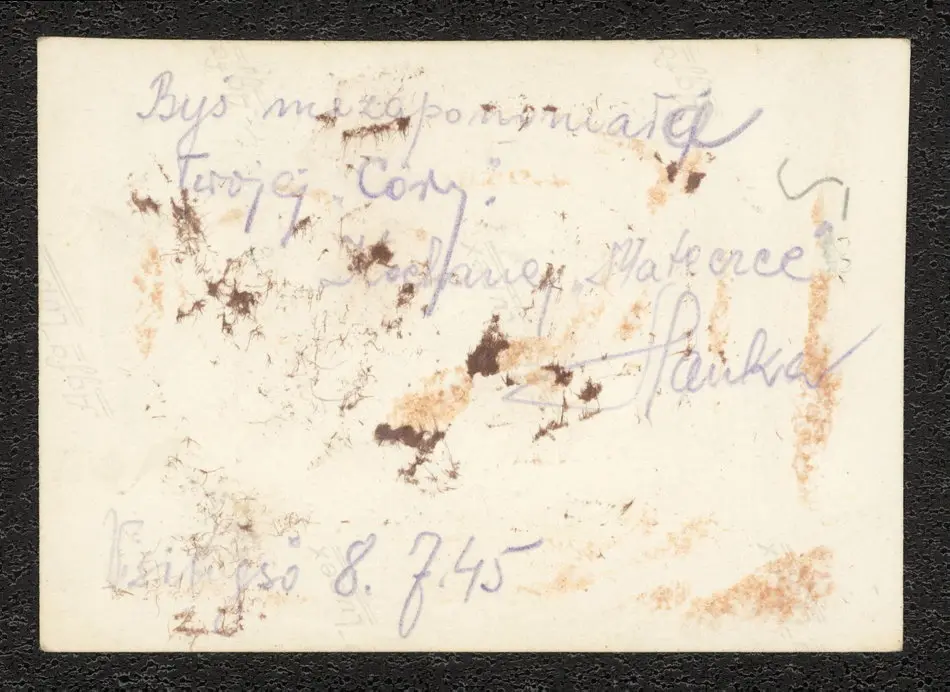 Byś niezapomniała
Twojej „Córy".
Kochanej „Mateczce"
Hanka
8. 7.45